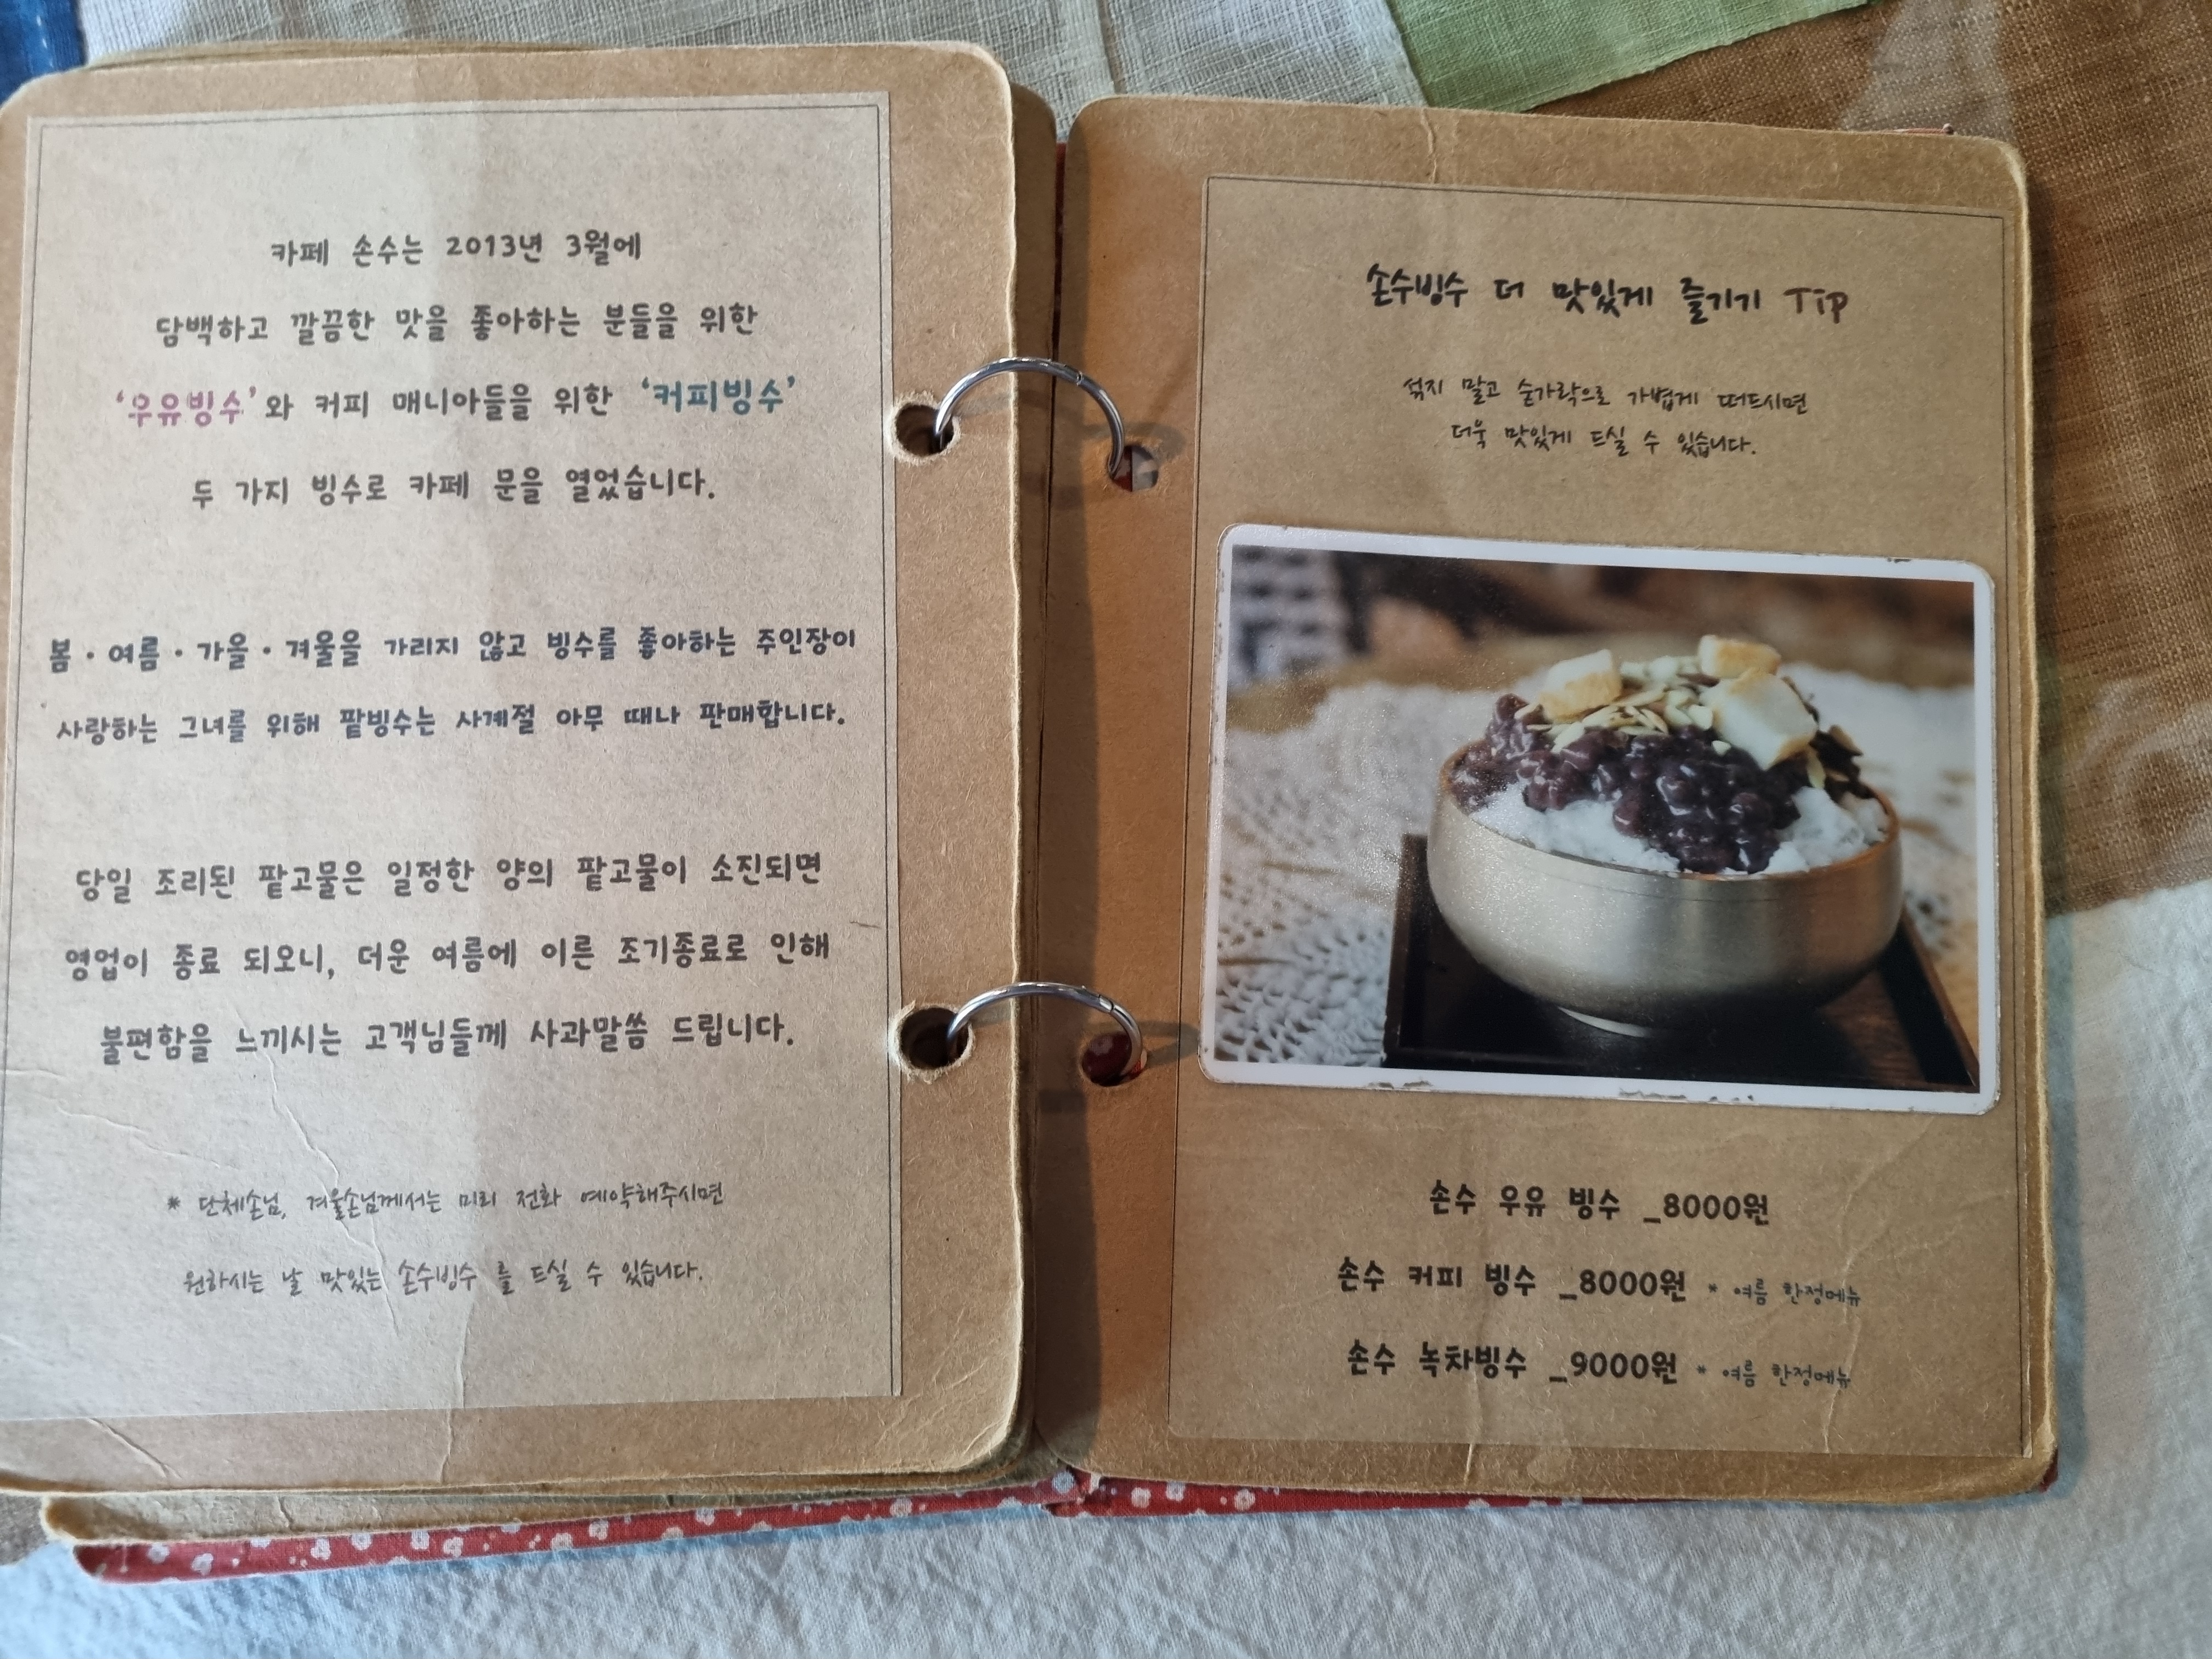 카페 손수는 2013년 3월에
담백하고 깔끔한 맛을 좋아하는 분들을 위한
‘우유빙수’와 커피 매니아들을 위한 ‘커피빙수’
두 가지 빙수로 카페 문을 열었습니다.
봄·여름·가을·겨울을 가리지 않고 빙수를 좋아하는 주인장이
사랑하는 그녀를 위해 팥빙수는 사계절 아무 때나 판매합니다.
당일 조리된 팥고물은 일정한 양의 팥고물이 소진되면
영업이 종료 되오니, 더운 여름에 이른 조기종료로 인해
불편함을 느끼시는 고객님들께 사과말씀 드립니다.
* 단체손님, 겨울손님께서는 미리 전화 예약해주시면
원하시는 날 맛있는 손수빙수 를 드실 수 있습니다.
손수빙수 더 맛있게 즐기기 Tip
섞지 말고 숟가락으로 가볍게 떠드시면
더욱 맛있게 드실 수 있습니다.
손수 우유 빙수 _8000원
손수 커피 빙수 _8000원 * 여름 한정메뉴
손수 녹차빙수 _9000원 * 여름 한정메뉴